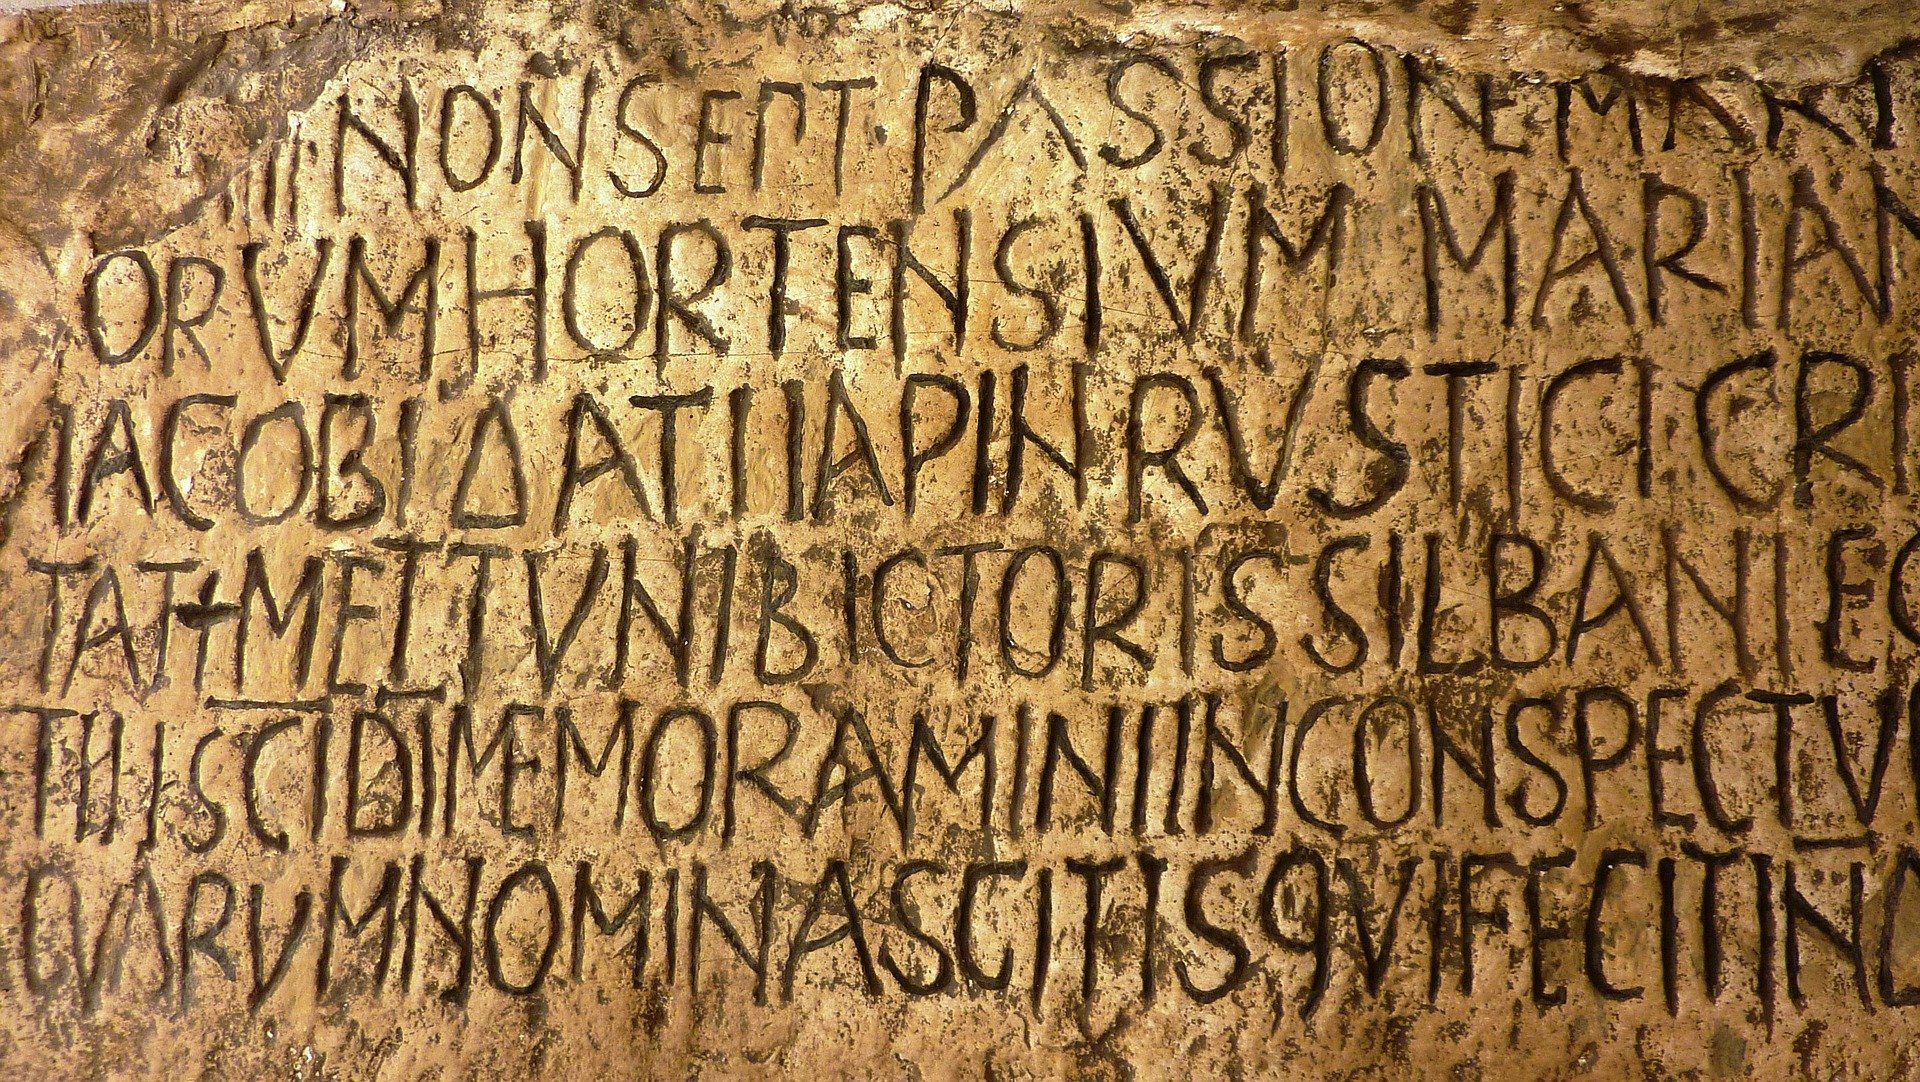 III NON SEPT PASSIONE MARTVR
ORVM HORTENSIVM MARIAN
IACOBI DATI IAPIN RVSTICI CRI
TATI METTVNI BICTORIS SILBANI EG
TII SCI DI MEMORAMINI IN CONSPECTV
QVARVM NOMINA SCITIS QVI FECIT IND